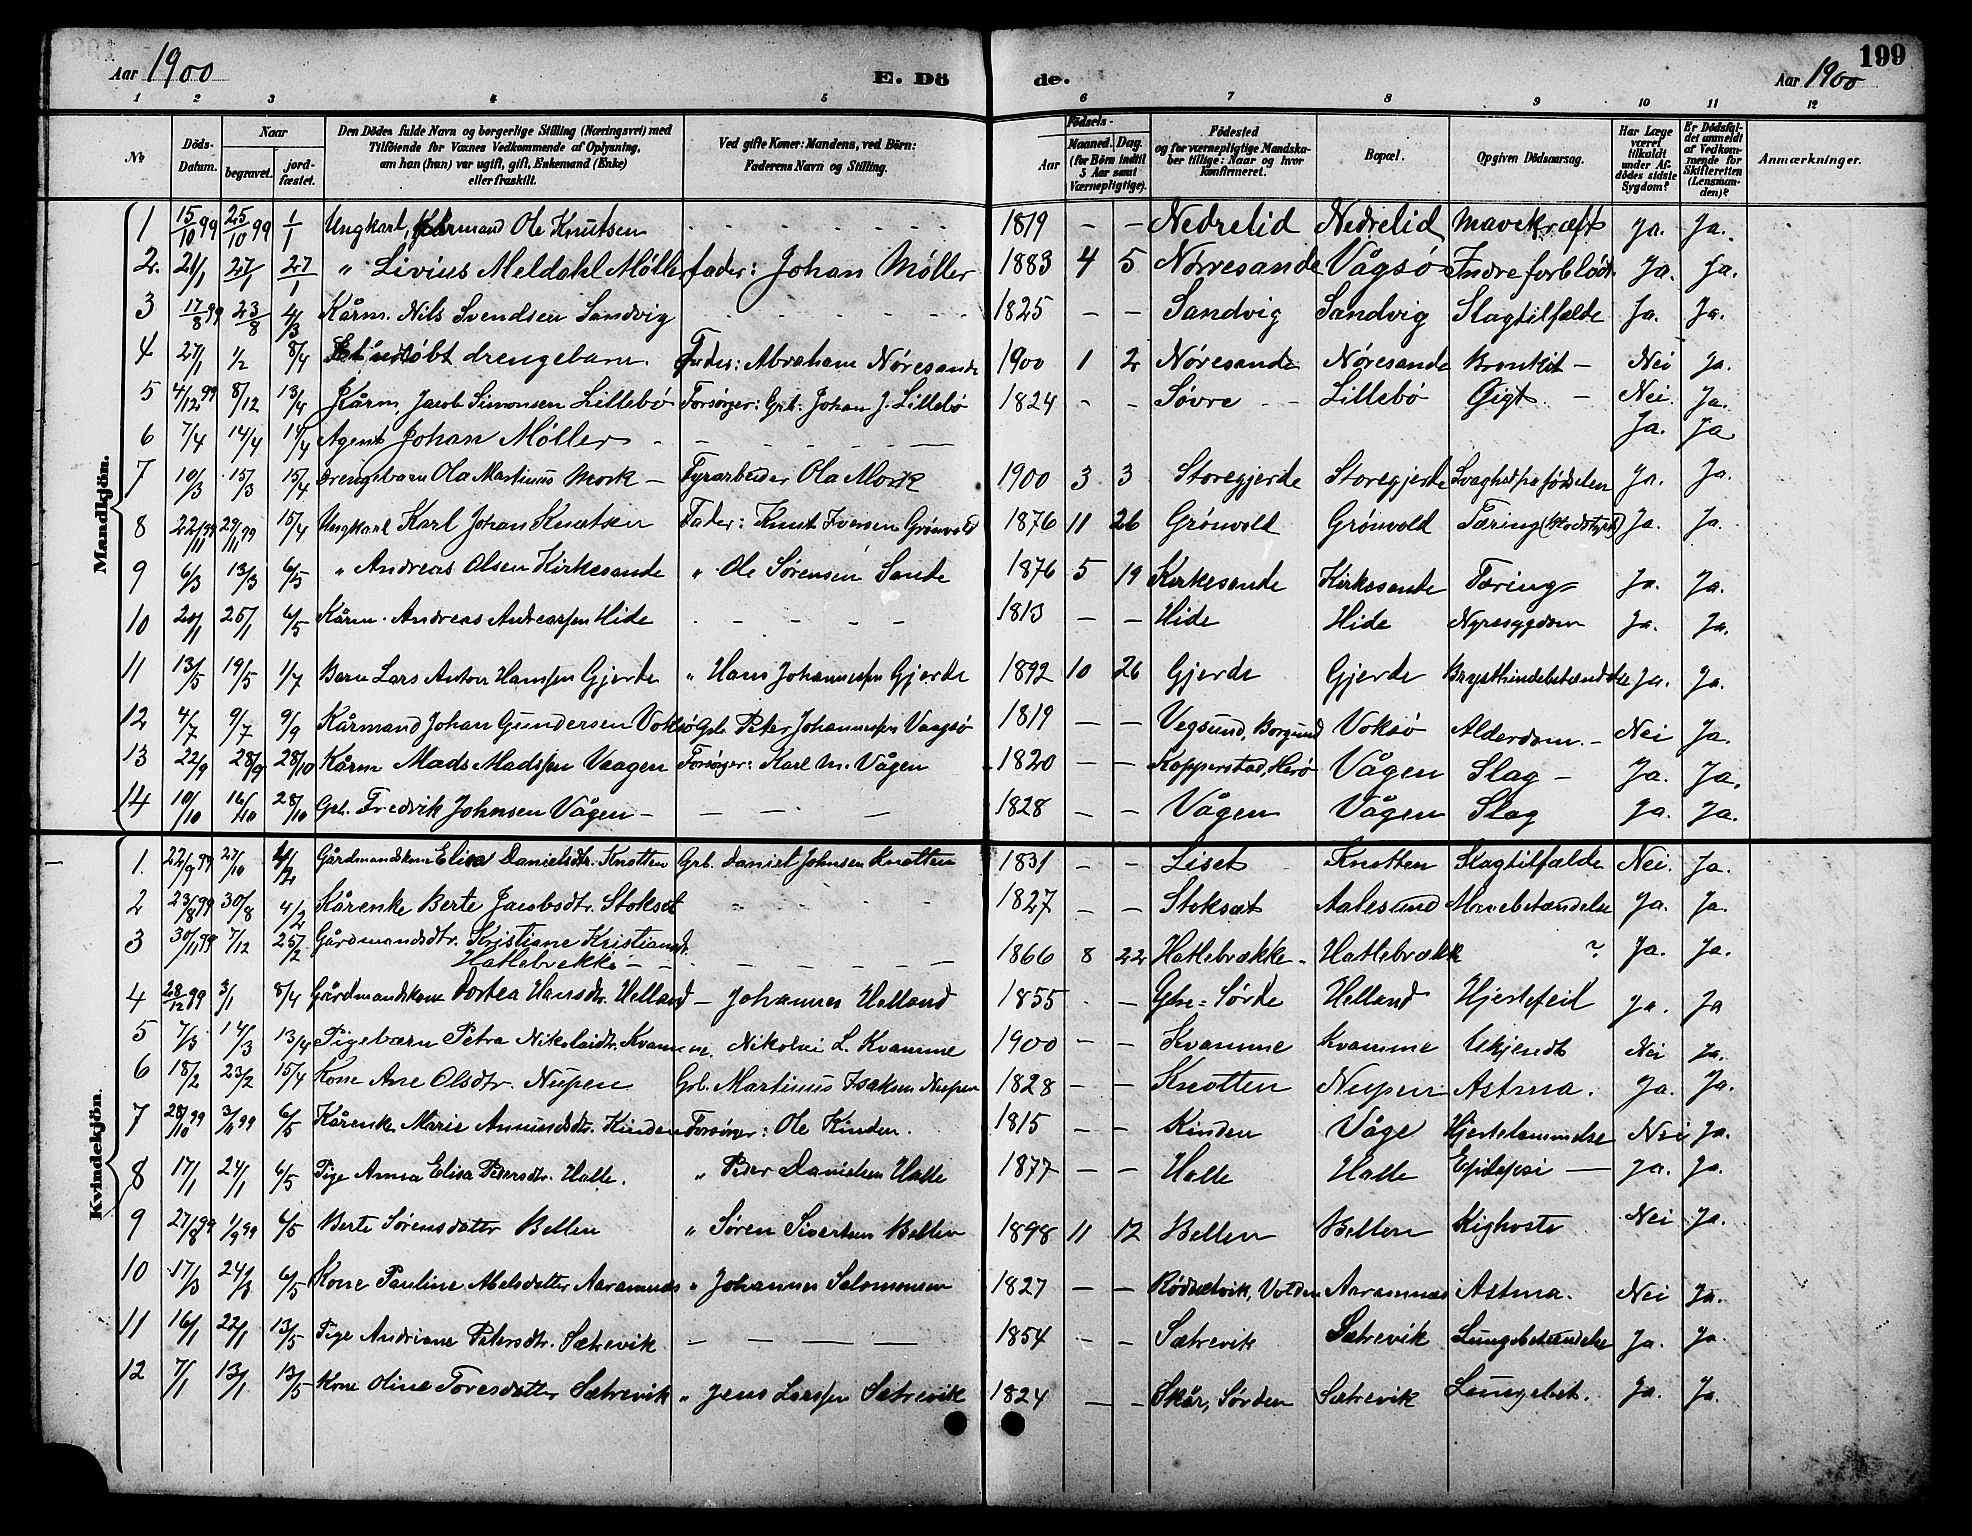 199
Aar 1900 E. Dö de. Aar 1900
1 2 3 4 5 6 7 8 9 10 11 12
No Döds-Datum. Naar begravet. jordfæstet. Den Dödes fulde Navn og borgerlige Stilling (Næringsvei) med Tilföiende for Voxnes Vedkommende af Oplysning, om han (hun) var ugift, gift, Enkemand (Enke) eller fraskilt. Ved gifte Koner: Mandens, ved Börn: Faderens Navn og Stilling. Födsels- Aar Maaned. Dag. (for Börn indtil 5 Aar samt Værnepligtige). Födested og for værnepligtige Mandskaber tillige: Naar og hvor konfirmeret. Bopæl. Opgiven Dödsaarsag. Har Læge været tilkaldt under Afdödes sidste Sygdom? Er Dödsfaldet anmeldt af Vedkommende for Skifteretten (Lensmanden)? Anmærkninger.
Mandkjön.
1 15/10 99 25/10 99 1/1 Ungkarl, Kårmand Ole Knutsen - - - - - - 1819 - - Nedrelid Nedrelid Mavekræft Ja. Ja.
2. 21/1 27/1 27/1 " Livius Meldahl Møller fader: Johan Møller 1883 4 5 Nørresande Vågsø Indre forblødn. Ja. Ja.
3 17/8 99 23/8 4/3 Kårm. Nils Svendsen Sandvig - - - - - - 1825 - - Sandvig Sandvig Slagtilfælde Ja. Ja.
4 27/1 1/2 8/4 Et udøbt drengebarn. Fader: Abraham Nøresande 1900 1 2 Nøresande Nøresande Bronkit - Nei Ja.
5 4/12 99 8/12 13/4 Kårm. Jacob Simonsen Lillebø Forsørger: Grb. Johan J. Lillebø 1824 - - Søvre - - Lillebø Gigt. - Nei. Ja.
6 7/4 14/4 14/4 Agent Johan Møller - - - - - - Ja. Ja
7 10/3 15/3 15/4 Drengebarn Ola Martinus Mork - Fyrarbeider Ola Mork 1900 3 3 Storegjerde Storegjerde Svaghed fra fødselen Ja. Ja.
8 22/11 99 29/11 99 15/4 Ungkarl Karl Johan Knutsen Fader: Knut Iversen Grønvold 1876 11 26 Grønvold Grønvold Tæring Ja. Ja.
9 6/3 13/3 6/5 " Andreas Olsen Kirkesande " Ole Sørensen Sande 1876 5 19 Kirkesande Kirkesande Tæring Ja. Ja.
10 20/1 25/1 6/5 Kårm. Andreas Andreassen Hide - - - - - 1813 - - Hide Hide Nyresygdom Ja. Ja.
11 13/5 19/5 1/7 Barn Lars Anton Hanssen Gjerde " Hans Johannessen Gjerde 1892 10 26 Gjerde Gjerde Brysthindebetændelse Ja. Ja.
12 4/7 9/7 9/9 Kårmand Johan Gundersen Voksø Grb. Peter Johannessen Vaagsø 1819 - - Vegsund, Borgund Voksø Alderdom. - Nei Ja.
13 22/9 28/9 28/10 Kårm Mads Madssen Vaagen Forsørger: Karl M. Vågen 1820 - - Kopperstad, Herø Vågen Slag - Ja. Ja.
14 10/10 16/10 28/10 Grb. Fredrik Johnsen Vågen - - - - 1828 - - Vågen Vågen Slag Ja. Ja.
Kvindekjön.
1. 22/9 99 27/10 4/2 Gårdmandskone Elisa Danielsdtr. Knotten Grb. Daniel Johnsen Knotten 1831 - - Liset Knotten Slagtilfælde Nei. Ja.
2 23/8 99 30/8 4/2 Kårenke Berte Jacobsdtr. Stokset - - - - - 1827 - - Stoksæt Aalesund Mavebetændelse Ja. Ja.
3 30/11 99 7/12 25/2 Gårdmandsdtr. Kristiane Kristiansdt.
Hatlebrekke - - - - - - - 1866 8 22 Hatlebrække - Hatlebrække ? Ja. Ja.
4 28/12 99 3/1 8/4 Gårdmandskone Dortea Hansdtr. Helland - Johannes Helland 1855 - - Helland Hjertefeil Ja. Ja
5 7/3 14/3 13/4 Pigebarn Petra Nikolaidtr. Kvamme. Nikolai L. Kvamme 1900 - - Kvamme Kvamme Ukjendt Nei Ja.
6 18/2 23/2 15/4 Kone Ane Olsdtr. Nupen Grb. Martinus Isaksen Nupen 1828 - - Knotten Nupen Astma. Ja. Ja.
7 28/10 99 3/11 99 6/5 Kårenke Marie Amundsdtr. Kinden Forsørger: Ole Kinden. 1815 - - Kinden Våge Hjertelammelse Nei Ja.
8 17/1 24/1 6/5 Pige Anna Elisa Petersdtr. Halle. " Peder Danielsen Halle 1877 - - Halle Halle Epilepsi - Ja. Ja.
9 27/8 99 1/9 99 6/5 Berte Sørensdatter Bellen " Søren Sivertsen Bellen 1898 11 12 Bellen Bellen Kighoste Nei Ja.
10 17/3 24/3 6/5 Kone Pauline Abelsdatter Aaramnæs " Johannes Salomonsen 1827 - - Rødsætvik, Volden Aaramnæs Astma. Nei Ja.
11 16/1 22/1 13/5 Pige Andriane Petersdtr. Sætrevik - - - - 1854 - - Sætrevik Sætrevik Lungebetændelse Ja. Ja.
12 7/1 13/1 13/5 Kone Oline Toresdatter Sætrevik " Jens Larssen Sætrevik 1824 - - Skår, Sørden Sætrevik Lungebet. Ja. Ja.